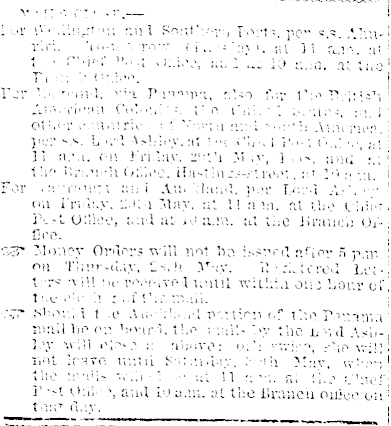 MAILS CLOSE,—
For Wellington and Southern Ports, per s.s. Ahu-
riri, from (Tuesday), at 11 a.m. at
the Chief Post Office, and at 10 a.m. at the
Branch Office.
For England, via Panama, also for the British
American Colonies, the United States, and
other countries of North and South America,
per s.s. Lord Ashley, at the Chief Post Office, at
11 a.m. on Friday, 29th May, and at
the Branch Office, Hastings-street, at 10 a.m.
For and Auckland, per Lord Ashley
on Friday, 29th May, at 11 a.m. at the Chief
Post Office, and at 10 a.m. at the Branch Of-
fice.
☞ Money Orders will not be issued after 5 p.m.
on Thursday, 28th May. Registered Let-
ters will be received until within one hour of
the closing of the mail.
☞ Should the Auckland portion of the Panama
mail be on board, the mails by the Lord Ash-
ley will close as above; otherwise, she will
not leave until Saturday, 30th May, when
the mails will close at 11 a.m. at the Chief
Post Office, and 10 a.m. at the Branch office on
that day.